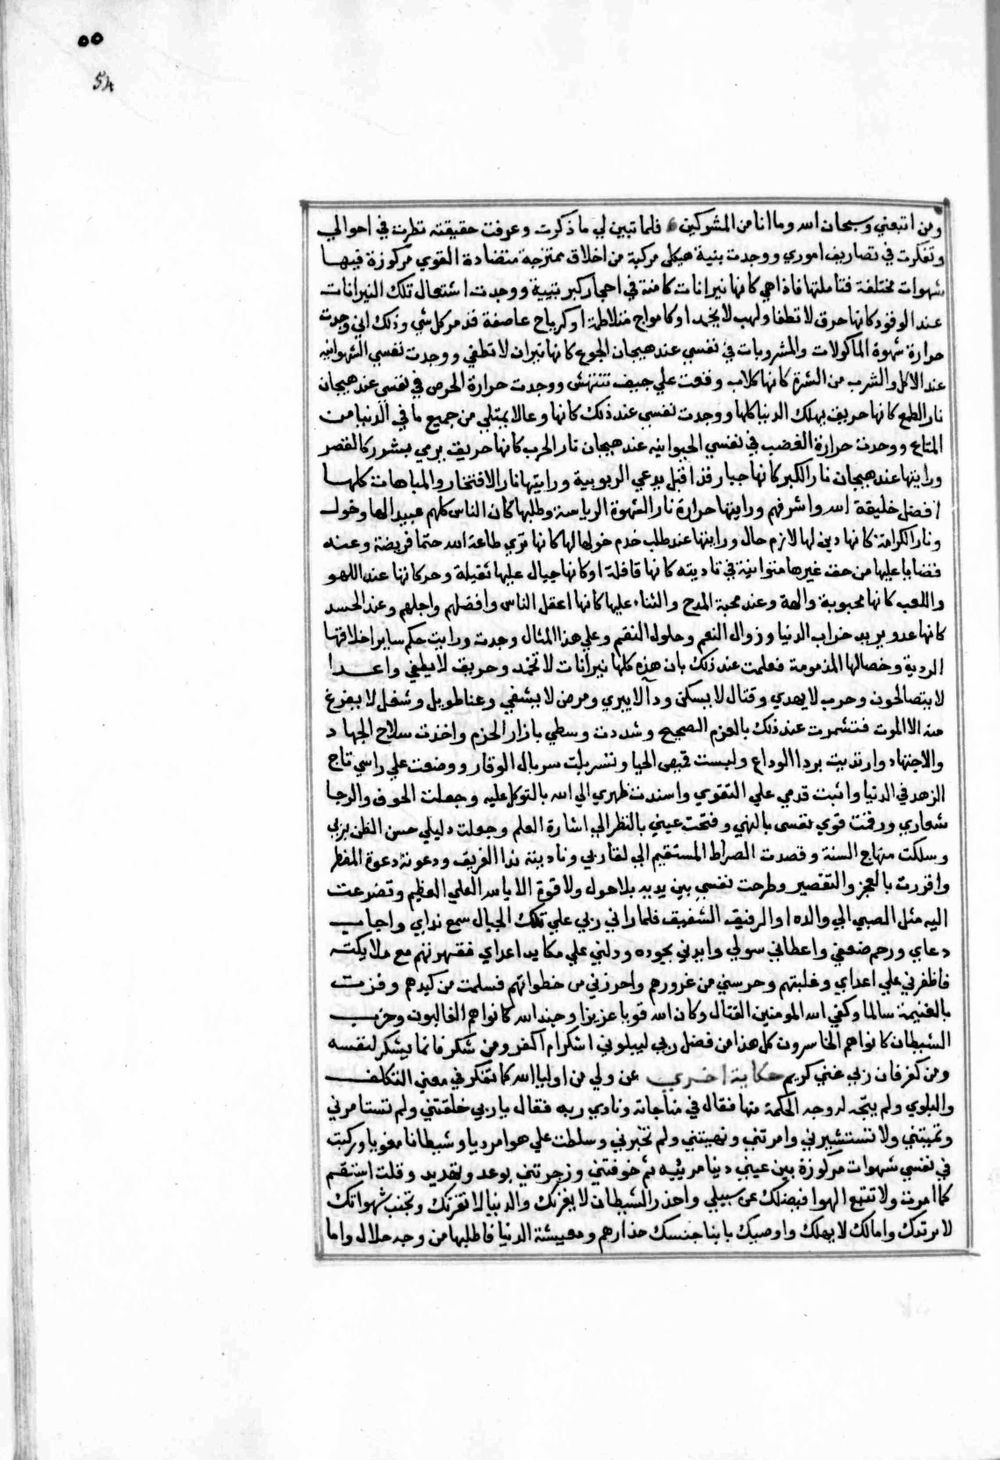 ٥٥
54
ومن اتبعني وسبحان الله وما انا من المشركين فلما تبين لي ما ذكرت وعرفت حقيقته نظرت في احوالي
وتفكرت في تصاريف اموري ووجدت بنية هيكلي مركبة من اخلاق ممتزجة متضادة القوي مركوزة فيها
شهوات مختلفة فتاملتها فاذا هي كانها نيرانات كامنة في احجار كبريتية ووجدت اشتعال تلك النيرانات
عند الوقود كانها حرق لا تطفا ولهب لا يخمد او كامواج متلاطمة او كرياح عاصفة تدمر كل شي وذلك اني وجدت
حرارة شهوة الماكولات والمشروبات في نفسي عند هيجان الجوع كانها نيران لا تطفي ووجدت نفسي الشهوانيه
عند الاكل والشرب من الشره كانها كلاب وقعت علي جيف تنتهش ووجدت حرارة الحرص في نفسي عند هيجان
نار الطمع كانها حريق يهلك الدنيا كلها ووجدت نفسي عند ذلك كانها وعا لا يمتلي من جميع ما في الدنيا من
المتاع ووجدت حرارة الغضب في نفسي الحيوانيه عند هيجان نار الحرب كانها حريق يرمي بشرر كالقصر
ورايتها عند هيجان نار الكبر كانها جبار قد اقبل يدعي الربوبية ورايتها نار الافتخار والمباهات كلها
افضل خليقة الله واشرفهم ورايتها حرارة نار الشهوة الرياسة وطلبها كان الناس كلهم عبيدا لها وخول
ونار الكرامة كانها دين لها لازم حال ورايتها عند طلب خدم خولها لها كانها تري طاعة الله حتما فريضة وعنه
قضايا عليها من حق غيرها متوانية في تاديته كانها قافلة او كانها جبال عليها ثقيلة وحركاتها عند اللهو
واللعب كانها محبوبة والهة وعند محبة المدح والثناء عليها كانها اعقل الناس وافضلهم واجلهم وعند الحسد
كانها عدو يريد خراب الدنيا وزوال النعم وحلول النقم وعلي هذا المثال وجدت ورايت حكم ساير اخلاقها
الردية وخصالها المذمومة فعلمت عند ذلك بان هذه كلها نيرانات لا تخمد وحريق لا يطفي واعدا
لا يتصالحون وحرب لا يهدي وقتال لا يسكن ودآ لا يبري ومرض لا يشفي وعنا طويل وشغل لا يفرغ
منه الا الموت فتشمرت عند ذلك بالعزم الصحيح وشددت وسطي بازار الحزم واخذت سلاح الجهاد
والاجتهاد وارتديت بردا الوداع ولبست قميص الحيا وتسربلت سربال الوقار ووضعت علي راسي تاج
الزهد في الدنيا واثبت قدمي علي التقوي واسندت ظهري الي الله بالتوكل عليه وجعلت الخوف والرجا
شعاري ورفت قوي نفسي بالنهي وفتحت عيني بالنظر الي اشارة العلم وجعلت دليلي حسن الظن بربي
وسلكت منهاج السنة وقصدت الصراط المستقيم الي لقا ربي وناديته ندا الغريق ودعوته دعوة المفطر
واقررت بالعجز والتقصير وطرحت نفسي بين يديه بلا حول ولا قوة الا بالله العلي العظيم وتضرعت
اليه مثل الصبي الي والده او الرفيق الشفيق فلما راني ربي علي تلك الحال سمع ندايي واجاب
دعاي ورحم ضعفي واعطاني سولي وايدني بجوده ودلني علي مكايد اعداي فقهرتهم مع ملايكته
فاظفرني علي اعداي وغلبتهم وحرسني من غرورهم واحرزني من خطواتهم فسلمت من كيدهم وفزت
بالغنيمة سالما وكفي الله المومنين القتال وكان الله قويا عزيزا وجند الله كانوا هم الغالبون وحزب
الشيطان كانوا هم الخاسرون كل هذا من فضل ربي ليبلوني اشكر ام اكفر ومن شكر فانما يشكر لنفسه
ومن كفر فان ربي غني كريم حكاية اخري عن ولي من اوليا الله كما تفكر في معني التكلف
والبلوي ولم يتجه له وجه الحكمة منها فقال في مناجاته ونادي ربه فقال يا ربي خلقتني ولم تستامرني
وتميتني ولا تستشيرني وامرتني ونهيتني ولم تخبرني وسلطت علي هوا مرديا وشيطانا مغويا وركبت
في نفسي شهوات مركوزة بين عيني دنيا مرئيه ثم خوفتني وزجرتني بوعد وتهديد وقلت استقم
كما امرت ولا تتبع الهوا فيضلك عن سبيلي واحذر الشيطان لا يغرنك والدنيا لا تغرنك وتجنب شهواتك
لا تردك وامالك لا يهلك واوصيك بابنا جنسك حذارهم ومعيشة الدنيا فاطلبها من وجه حلال واما